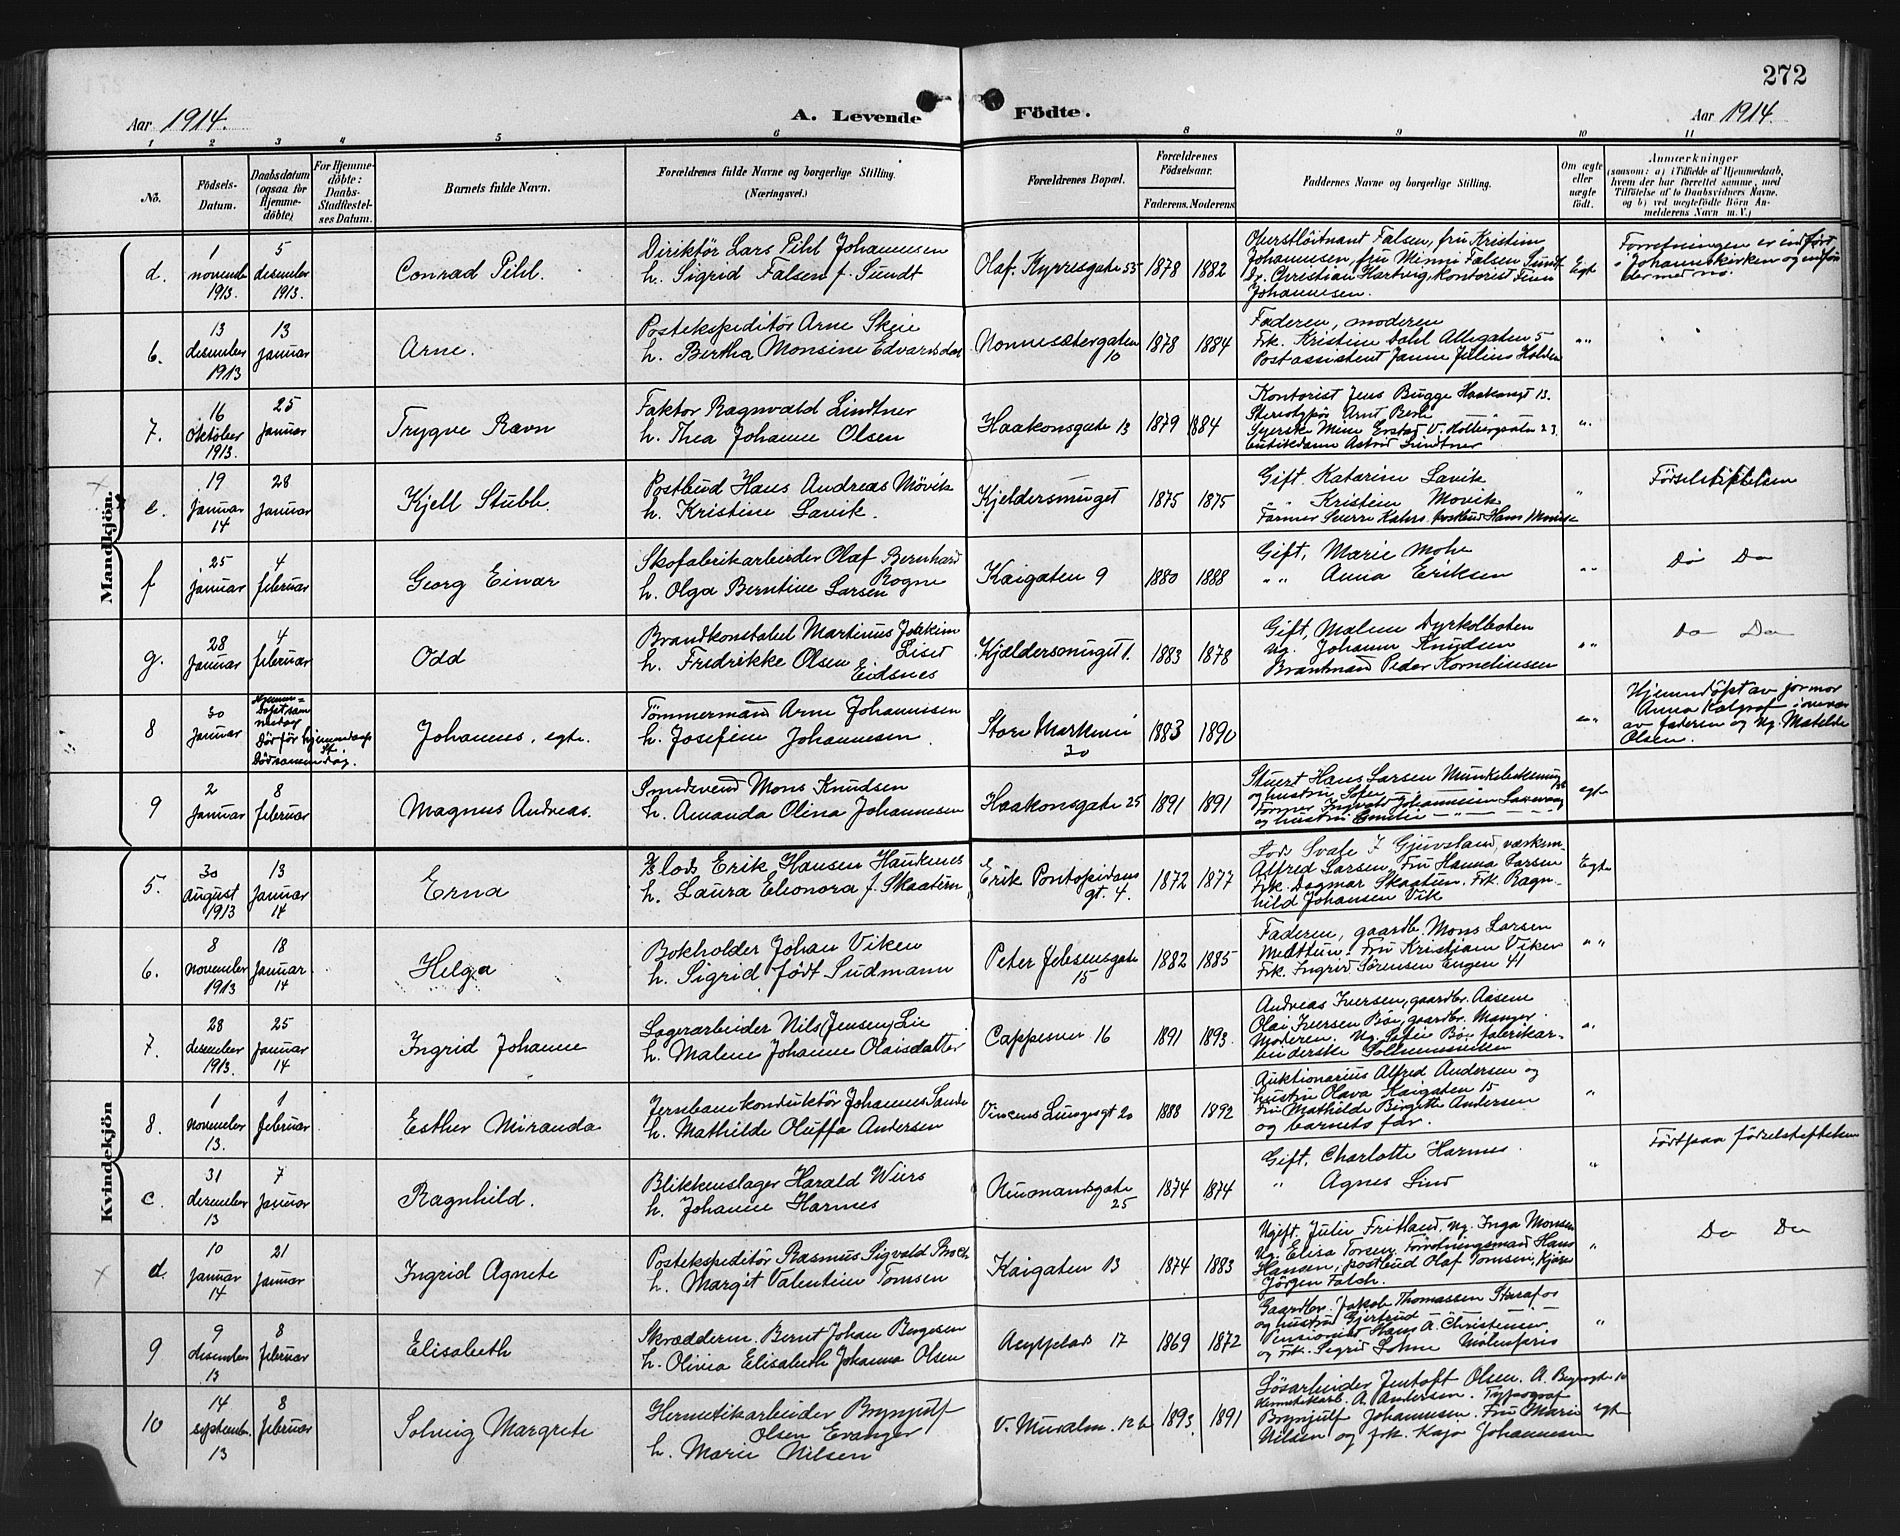 272
Aar 1914. A. Levende Födte. Aar 1914.
1 2 3 4 5 6 8 9 10 11
No. Födsels-Datum. Daabsdatum (ogsaa for Hjemme-döbte) For Hjemme-döbte: Daabs-Stadfæstel-ses Datum. Barnets fulde Navn. Forældrenes fulde Navne og borgerlige Stilling. (Næringsvei.) Forældrenes Bopæl. Forældrenes Födselsaar. Faderens. Moderens. Faddernes Navne og borgerlige Stilling. Om ægte eller uægte født. Anmærkninger (saasom: a) i Tilfælde af Hjemmedaab, hvem der har forrettet samme, med Tilföielse af to Daabsvidners Navne. og b) ved uægtefödte Börn An-melderens Navn m. V.)
Mandkjön.
d. 1 novembr 1913. 5 desember 1913. Conrad Pihl. Diriktör Lars Pihl Johannesen
h. Sigrid Falsen f. Sundt Olaf Kyrresgate 55 1878 1882 Oberstlöitnant Falsen, fru Kristine
Johannesen, fru Minni Falsen Sundt
Dr. Christian Hartvig, kontorist Finn
Johannesen. Egt Forretningen er indført
i Johanneskirken og
6. 13 desember 1913 13 Januar Arne. Postekspeditör Arne Skeie
h. Bertha Monsine Edvardsdat Nonnesætergaten 10 1878 1884 Faderen, moderen
Frk. Kristine Dahl Allegaten 5
Postassistent Janne Julius Holden " "
7. 16 Oktober 1913. 25 Januar Trygve Ravn Faktor Ragnvald Lindtner
h. Thea Johanne Olsen Haakonsgate 13 1879 1884 Kontorist Jens Bugge Haakonsgt 13.
Stereotypör Arnt Berle
Syerske Mine Erstad V. Holbergsalm 23
butikdame Astrid Lindtner "
e. 19 Januar 14 28 Januar Kjell Stubb. Postbud Hans Andreas Mövik
h. Kristine Lavik. Kjeldersmuget 1875 1875 Gift Katarine Lavik
" " Kristine Movik
Farmer Sverre postbud Hans " Förselstiftelsen
f 25 Januar 4 februar Georg Einar Skofabrikarbeider Olaf Bernhard
Rogne
h. Olga Berntine Larsen Kaigaten 9 1880 1888 Gift, Marie Mohr
" " Anna Eriksen " " Do Do
g. 28 Januar 4 februar Odd Brandkonstabel Martinus Joakim
Liset
h. Fredrikke Olsen Eidsnes Kjeldersmuget 1. 1883 1878 Gift, Malene Dyrkolboten
Ug. Johanne Knudsen
Brantmand Peder Korneliussen " " Do Do
8 30 Januar Hjemme=
döpt sam
medag
Dör för hjemmedaaps
St.
Död sammedag. Johannes, egte. Tömmermand Arne Johannesen
h. Josefine Johannesen. Store Markevei 30 1883 1890 " " Hjemmdöpt av jormor
Anna
av faderen og Ug. Matilde
Olsen.
9 2 Januar 8 februar Magnus Andreas. Smedsvend Mons Knudsen
h. Amanda Olina Johannesen Haakonsgate 25 1891 1891 Stuert Hans Larsen Munkebotten
og hustru Sofie
Former Ingvald Johannesen Laxevaag
og hustru Emilie egte
Kvindekjön
5. 30 august 1913 13 Januar 14 Erna lods Erik Hansen Haukenes
h. Laura Eleonora f. Skaatun Erik Pontopidans gt. 4. 1872 1877 Lods Svale J Gjuvsland, værksm.
Alfred Larsen, Fru Hanna Larsen
Frk. Dagmar Skaatun. Frk. Ragn-
hild Johansen Vik Egte
6. 8 november 1913 18 Januar 14 Helga Bokholder Johan Viken
h. Sigrid født Sudmann Peter Jebsensgate 15 1882 1885 Faderen, gaardb. Mons Larsen
Midttun. Fru Kristiane Viken
Frk. Ingrid Sørensen Engen 41 " "
7. 28 desember 1913. 25 Januar 14 Ingrid Johanne Lagerarbeider Nils (Jensen) Lie
h. Malene Johanne Olaisdatter Cappesmer 16 1891 1893. Andreas Iversen, gaardbr. Aasene
Olai Iversen Böe, gaardbr. Manger.
Moderen. Ug. Sofie Böe fabrikar-
beiderske "
8. 1 november 13. 1 februar Esther Miranda Jernbanekonduktör Johannes Sande
h. Mathilde Oluffa Andersen Vincens Lungesgt 20 1888 1892 Auktionarius Alfred Andersen og
hustru Olava Kaigaten 15
Fru Mathilde Birgitte Andersen
og barnets far. "
c. 31 desember 13 7 Januar Ragnhild. Blikkenslager Harald Wiers
h. Johanne Harmes Neumansgate 25 1874 1874 Gift, Charlotte Harmes.
" Agnes Lind " Födt paa födselstiftelsen
d. 10 Januar 14 21 Januar Ingrid Agnete Postekspeditör Rasmus Sigvald Broch
h. Margit Valentine Tomsen Kaigaten 13 1874 1883 Ugift. Julie Fritland, ug. Inga Monsen
Ug. Elisa Torsen, Forretningsmand Hans
Hansen, postbud Olaf Tomsen,
Jörgen Falch. " Do Do
9 9 desember 13 8 februar Elisabeth Skræddern. Bernt Johan Borgesen
h. Olivia Elisabeth Johanna Olsen Asylplas 17 1869 1872 Gaardbr. Jakob Thomassen Storafos
og hustru Gjertrud
Pensionist Hans A. Christensen
og Frk. Sigrid Lohne Mölenpris "
10 14 septembr. 13 8 februar Solveig Margrete Hermetikarbeider Brynjulf
Olsen Evanger
h. Marie Nilsen V. Muralm. 12 b 1893. 1891 Løsarbeider Jentoft Olsen. A.
Hermetikarb. A. Andersen. Typograf
Brynjulf Johannesen. Fru Marie
Nilsen og frk. Kaja Johannesen egte